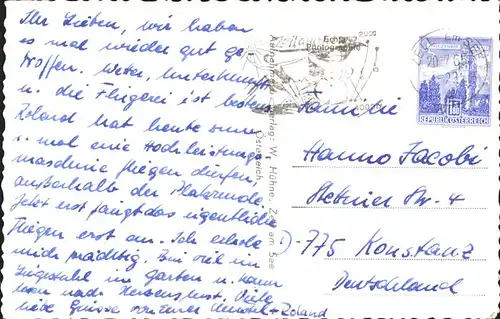 Ihr Lieben, wir haben
es mal wieder gut ge-
troffen. Wetter, Unterkunft
u. die Fliegerei ist bestens
Roland hat heute zum
1. mal eine Hochleistungs
maschine fliegen dürfen,
außerhalb der Platzrunde.
Jetzt erst fängt das eigentliche
Fliegen erst an. Ich erhole
mich prächtig. Bin viel im
Liegestuhl im Garten u. kann
nach Herzenslust. Viele
liebe Grüsse von Eurer + Roland
Echte
Photographie
2000
Verlag: W. Hühne, Zell am See
Österreich
ZELL am SEE
REPUBLIK ÖSTERREICH
Familie
Hanno Jacobi
Stettiner Str. 4
775 Konstanz
Deutschland